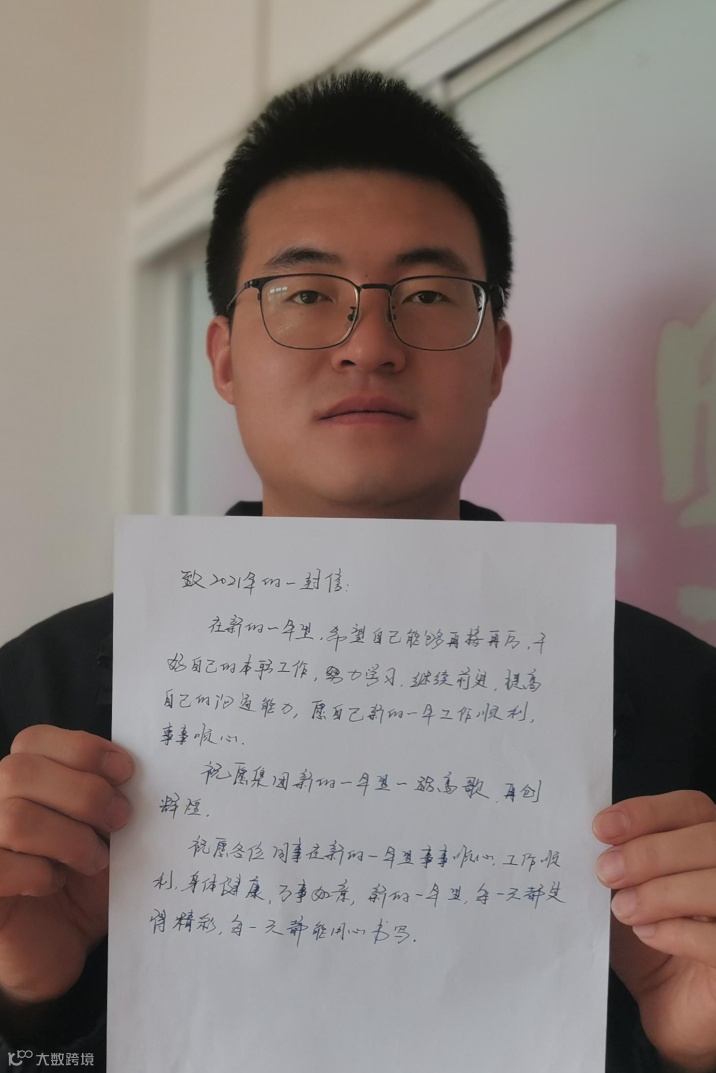 致2021年的一封信:
在新的一年里,希望自己能够再接再厉,干
好自己的本职工作,努力学习,继续前进,提高
自己的沟通能力,愿自己新的一年工作顺利,
事事顺心.
祝愿集团新的一年里一路高歌,再创
辉煌.
祝愿各位同事在新的一年里事事顺心,工作顺
利,身体健康,万事如意,新的一年里,每一天都过
得精彩,每一天都能用心书写.
大数跨境